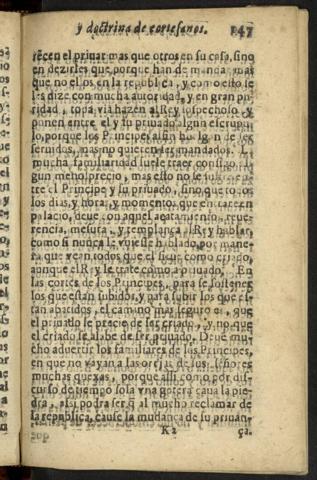 y doctrina de cortesanos. 147
recen el priuar mas que otros en su casa, sino
en dezirles que porque han de mandar mas
que no ellos en la republica, y como esto se
les dize con mucha autoridad, y en gran pu-
ridad, toda via hazen al Rey sospechoso, y
ponen entre el y su priuado algun escrupu-
lo, porque los Principes assi huelgan de ser
seruidos, mas no quieren ser mandados. La
mucha familiaridad suele traer consigo al-
gun menosprecio, mas esto no se
tre el Principe y su priuado, sino que todos
los dias, y horas, y momentos que entrare en
palacio, deue con aquel acatamiento, reue-
rencia, mesura, y templança al Rey hablar,
como si nunca le vuiesse hablado, por mane-
ra que vean todos que el sigue como criado,
aunque el Rey le trate como a priuado. En
las cortes de los Principes, para se sostener
los que estan subidos, y para subir los que es-
tan abatidos, el camino mas seguro es, que
el priuado se precie de ser criado, y no que
el criado se alabe de ser priuado. Deue mu-
cho aduertir los familiares de los Principes,
en que no vayan a las orejas de sus señores
muchas quexas, porque assi como por dis-
curso de tiempo sola vna gotera caua la pie-
dra, assi podra ser q̃ al mucho reclamar de
la republica, cause la mudança de su priuan-
K 2 ça.